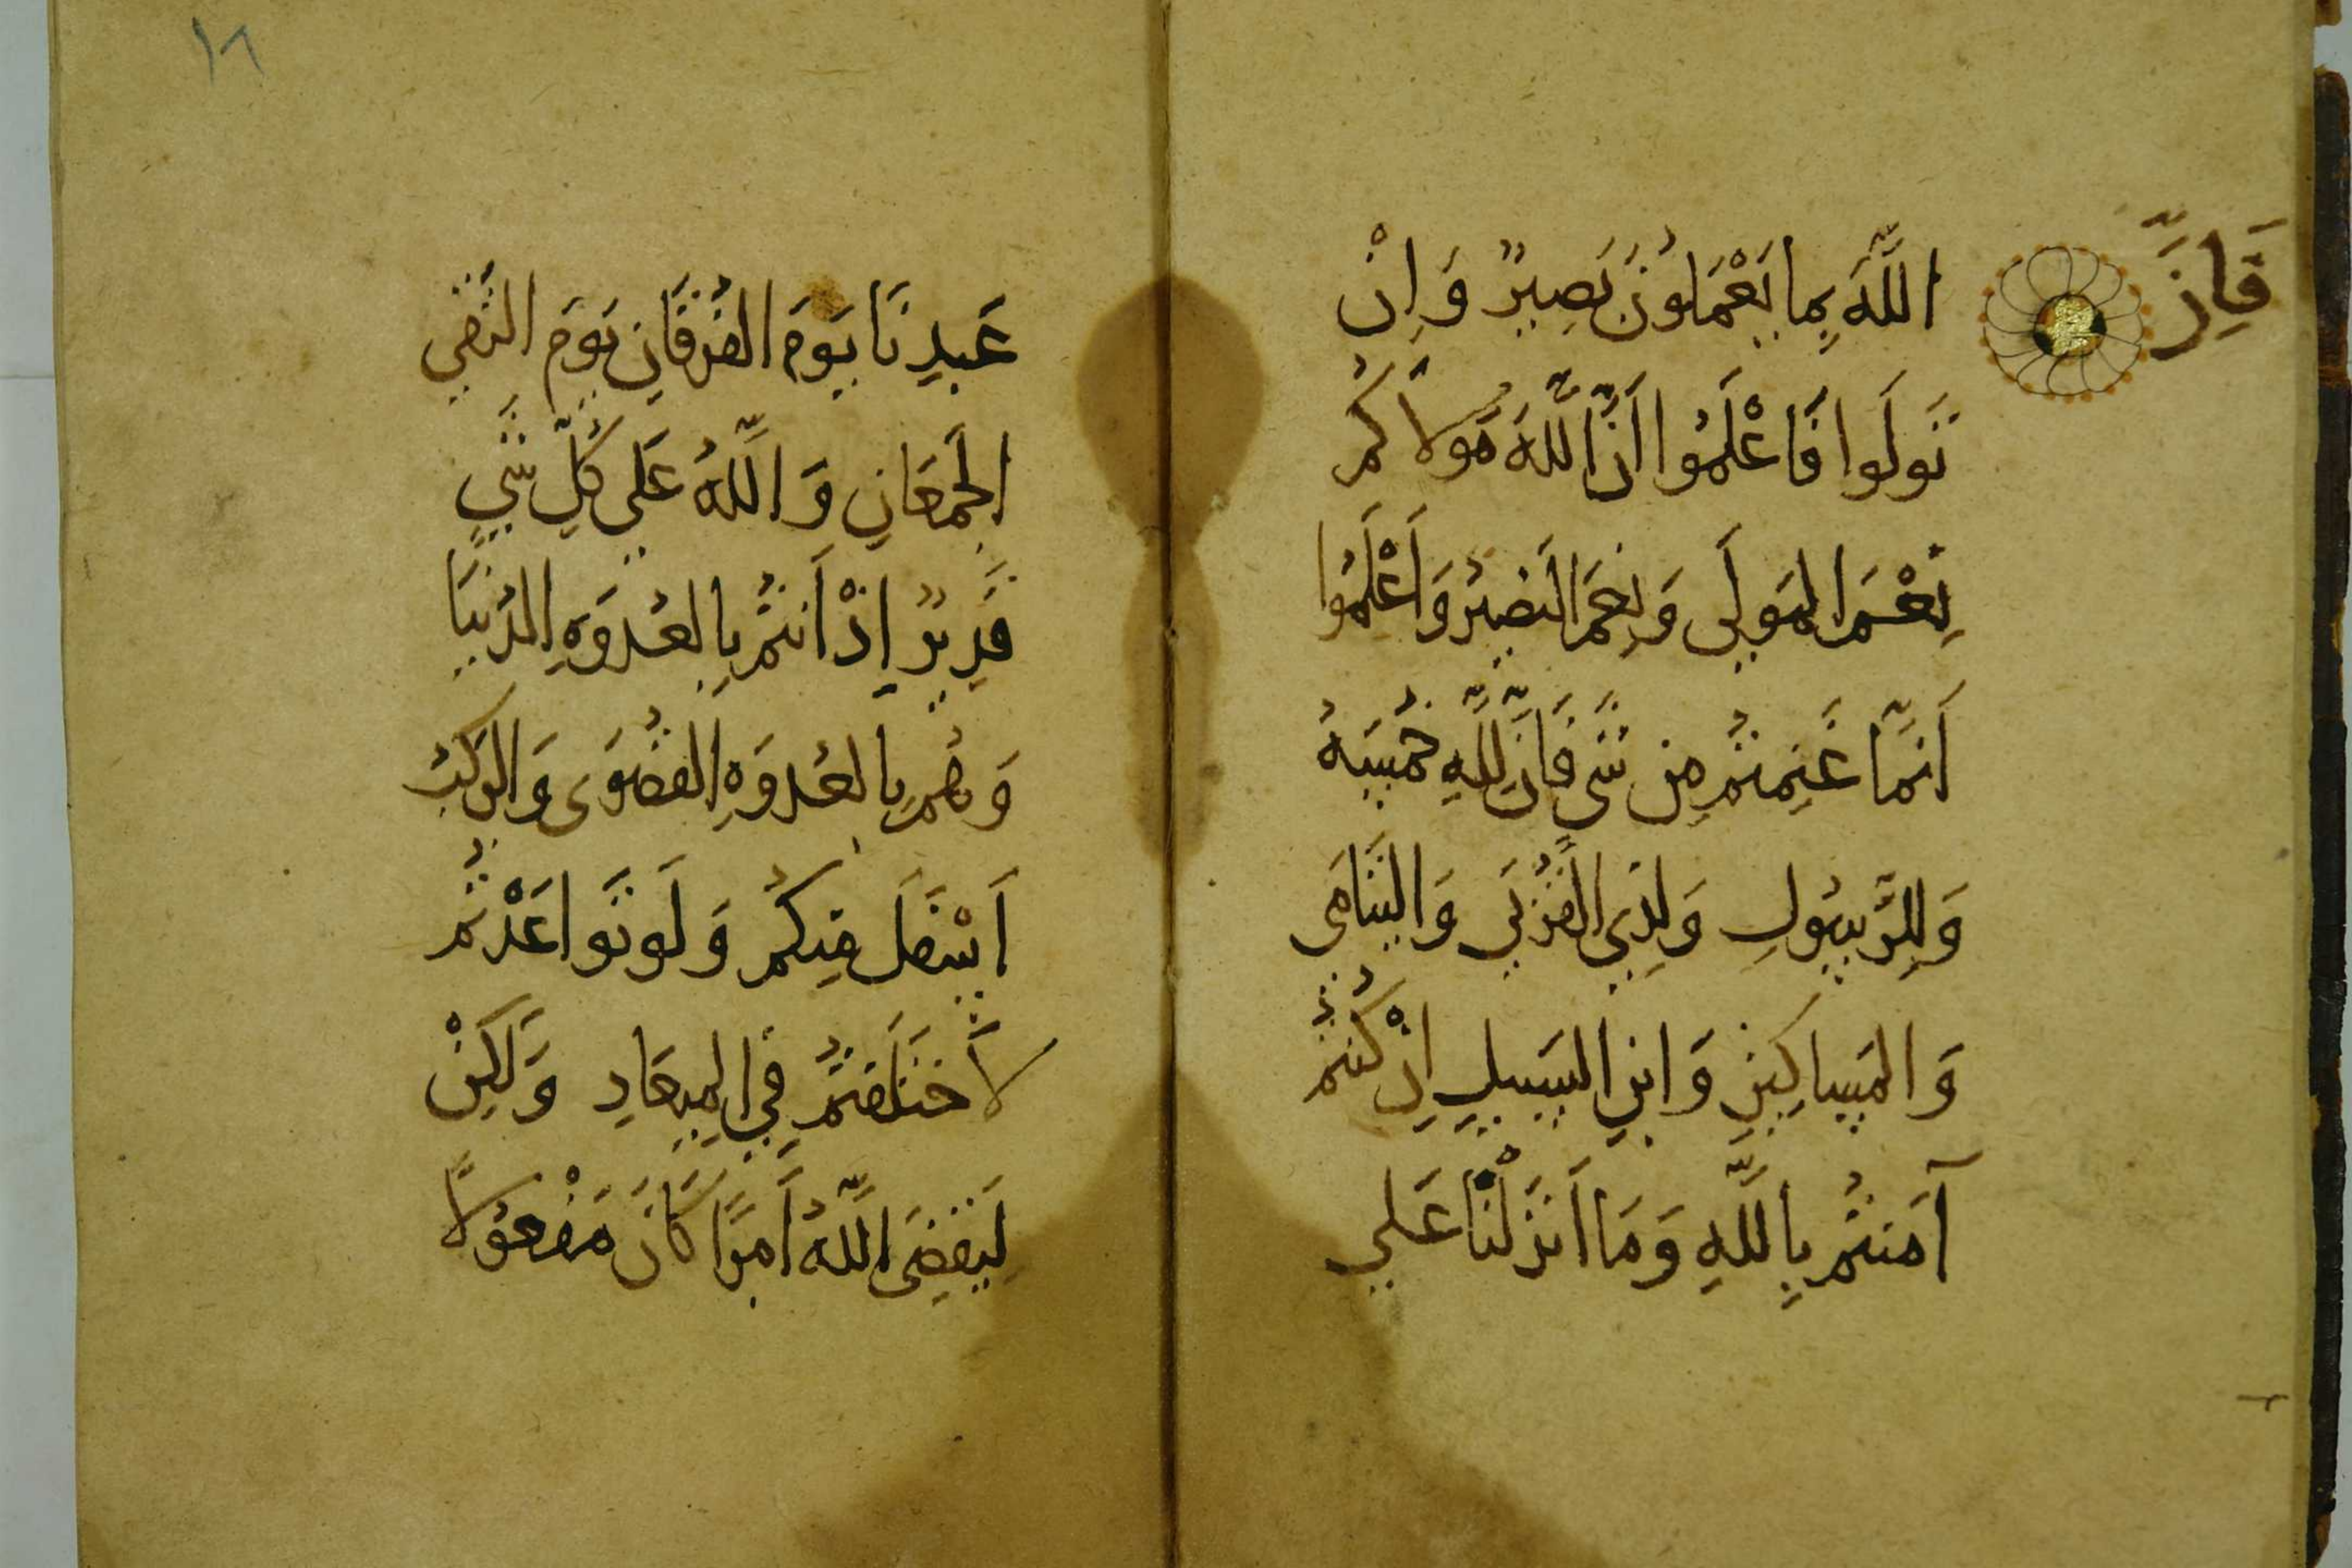 فَاِنَّ
اللَّهَ بِمَا يَعْمَلُونَ بَصِيرٌ وَاِنْ
تَوَلَوا فَاعْلَمُوا اَنَّ اللَّهَ مَولاَكُم
نِعْمَ المَولَى وَنِعمَ النَصِيرُ وَاَعْلَمُوا
اَنَّمَا غَنِمتُم مِن شَىٍ فَاَنَّ لِلَّهِ خُمسَهُ
وَلِلرَّسُولِ وَلِذِى القُرْبَى وَاليَتَامَى
وَالمَسَاكِينِ وَابنِ السَبِيلِ اِنْ كُنتُم
آمَنتُم بِاللَّهِ وَمَا اَنزَلْنَا عَلَى
١٦
عَبدِنَا يَومَ الفُرقَانِ يَومَ التَقَى
الجَمعَانِ وَاللَّهُ عَلَى كُلِّ شَىٍ
قَدِيرٌ اِذْ اَنتُم بِالعُدوَهِ الدُنيَا
وَهُم بِالعُدوَهِ القُصوَى وَالرَكبُ
اَسْفَلَ مِنكُم وَلَو تَوَاعَدْتُم
لاَختَلَفتُم فِى المِيعَادِ وَلَكِنْ
لِيَقضِىَ اللَّهُ اَمرًا كَانَ مَفْعُولاً